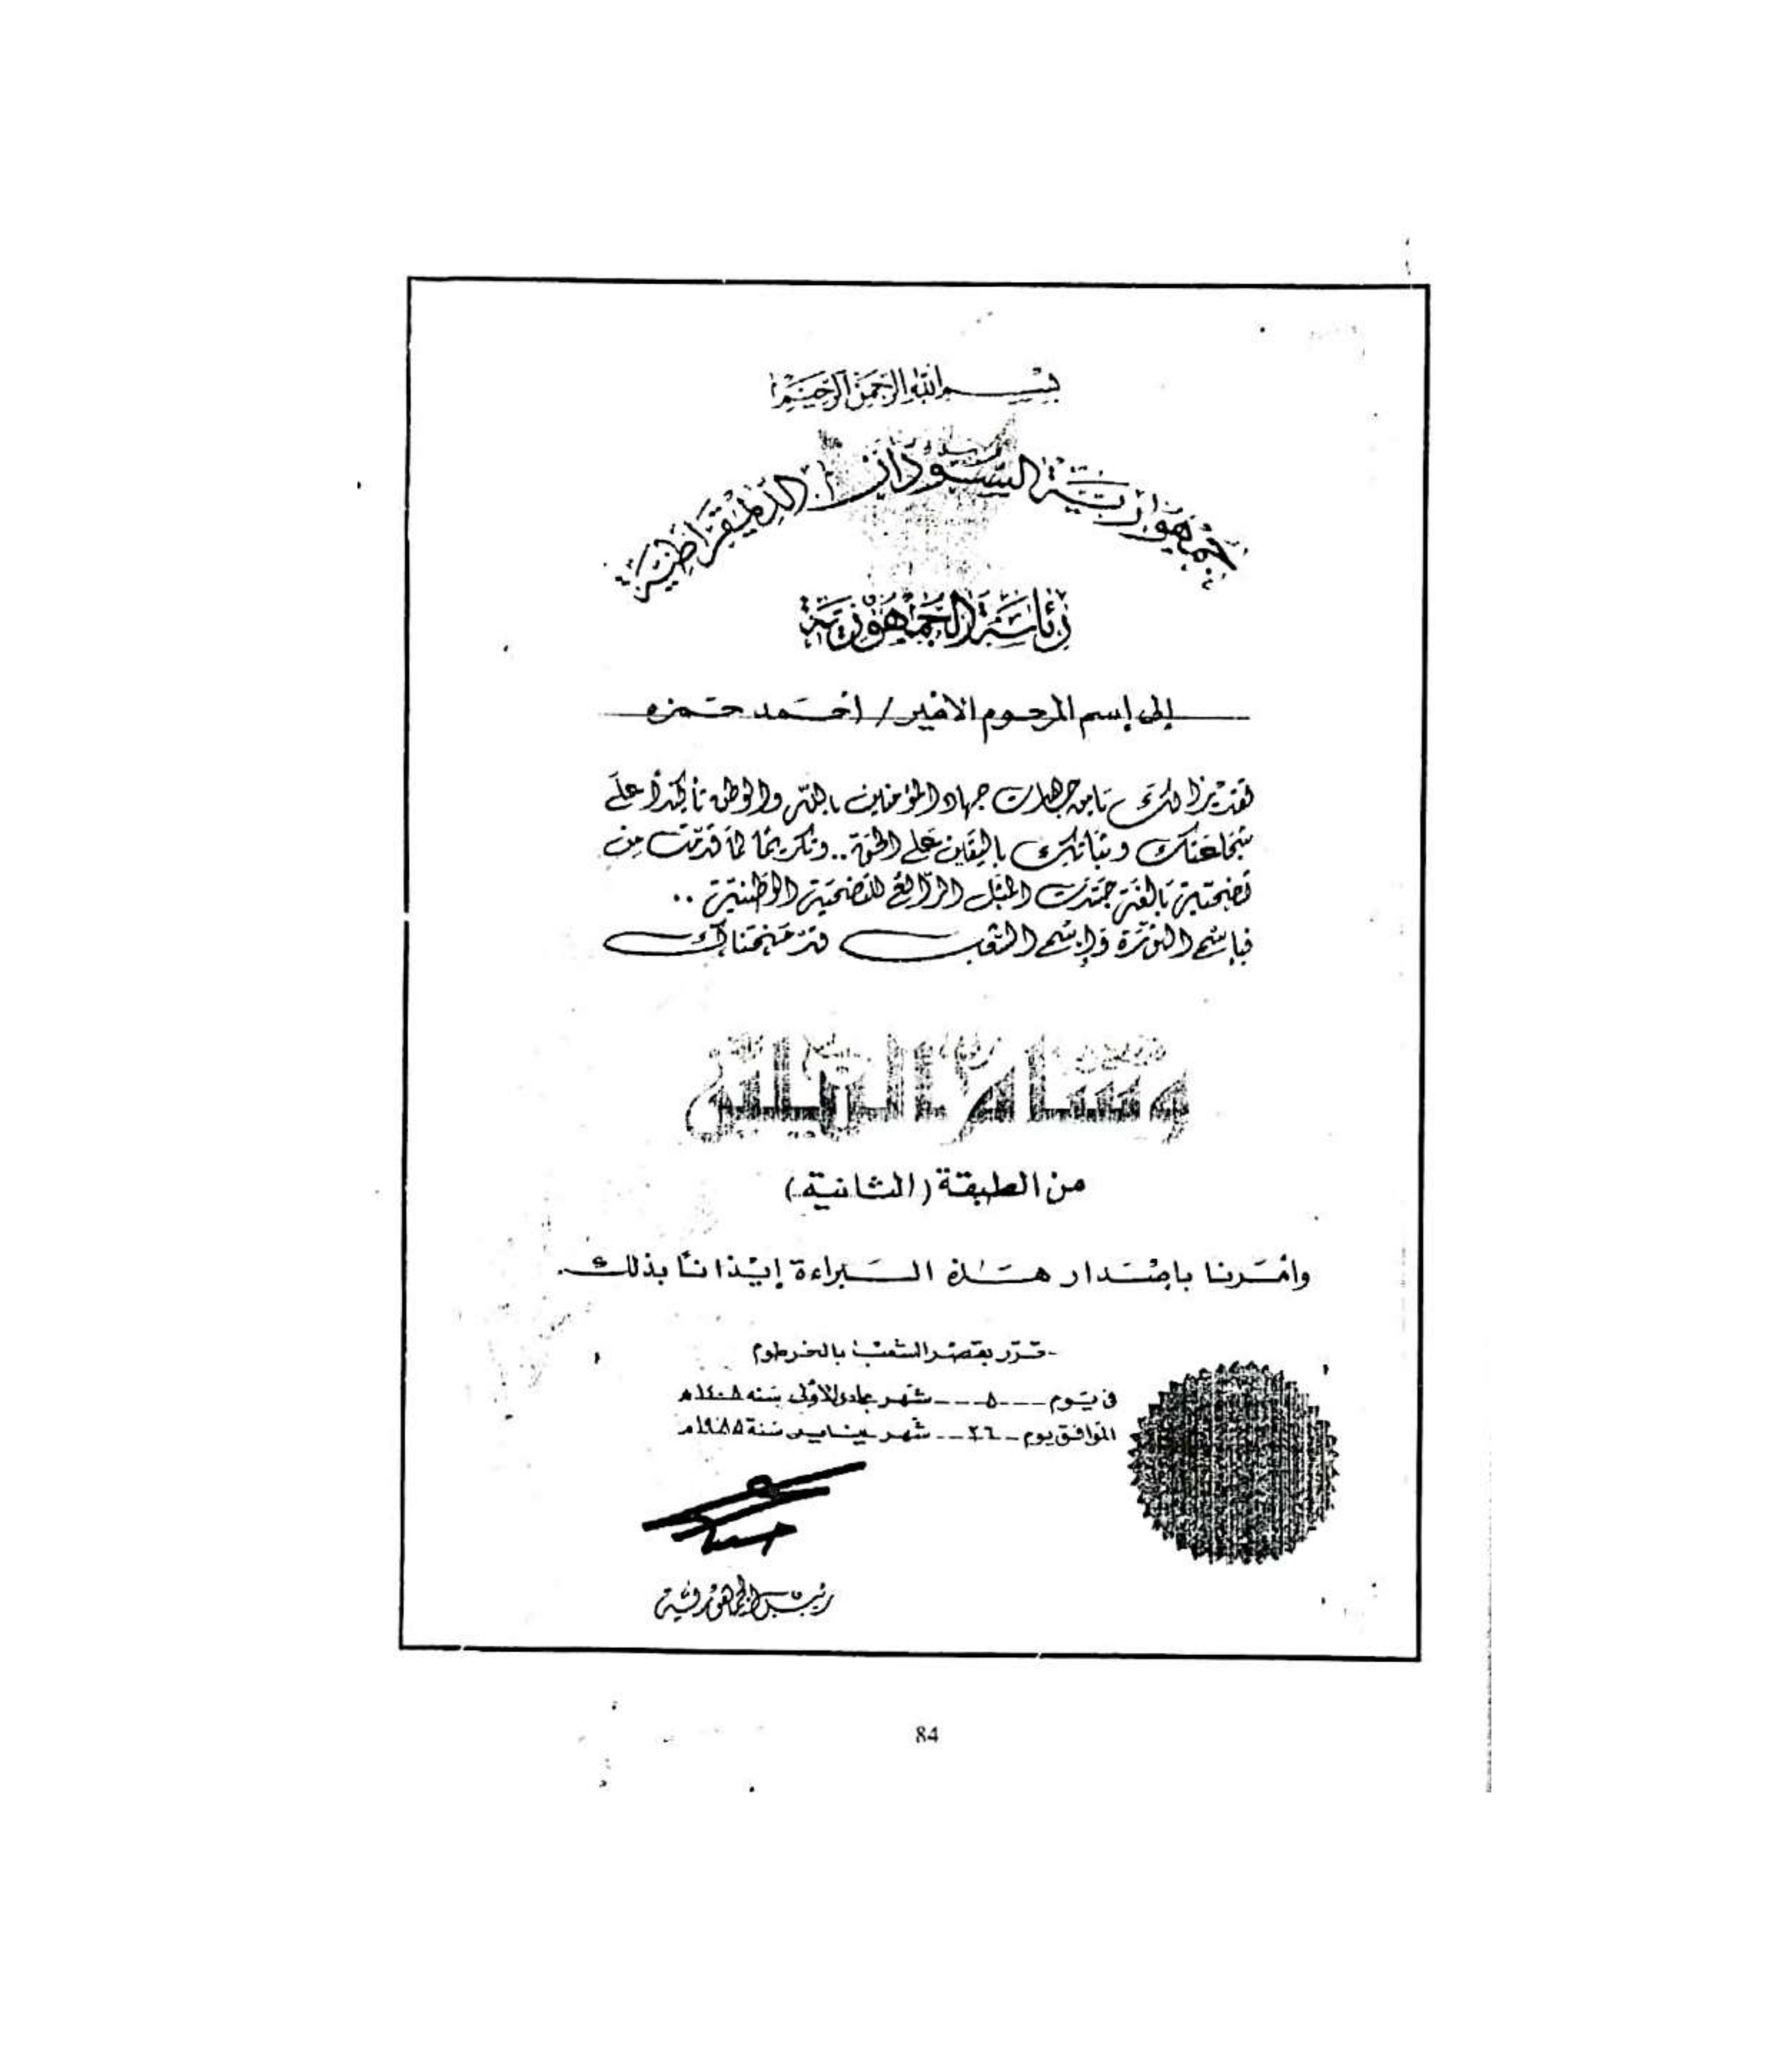 بسم الله الرحمن الرحيم
جمهورية السودان الديمقراطية
رئاسة الجمهورية
إلى إسم المرحوم الأمير / أحمد حمزه
تقديرًا لك يا من جاهدت جهاد المؤمنين بالله والوطن تأكيدًا على
شجاعتك وثباتك باليقين على الحق .. وتكريمًا لما قدمت من
تضحية بالغة جسدت المثل الرائع للتضحية الوطنية ..
فباسم الثورة وإسم الشعب قد منحناك
وسام النيلين
من الطبقة (الثانية)
وأمرنا بإصدار هذه البراءة إيذانًا بذلك.
-قرر بقصر الشعب بالخرطوم
في يوم ---٥--- شهر جمادى الأولى سنه ١٤٠٥هـ
الموافق يوم -٢٦-- شهر يناير سنة ١٩٨٥م
رئيس الجمهورية
84